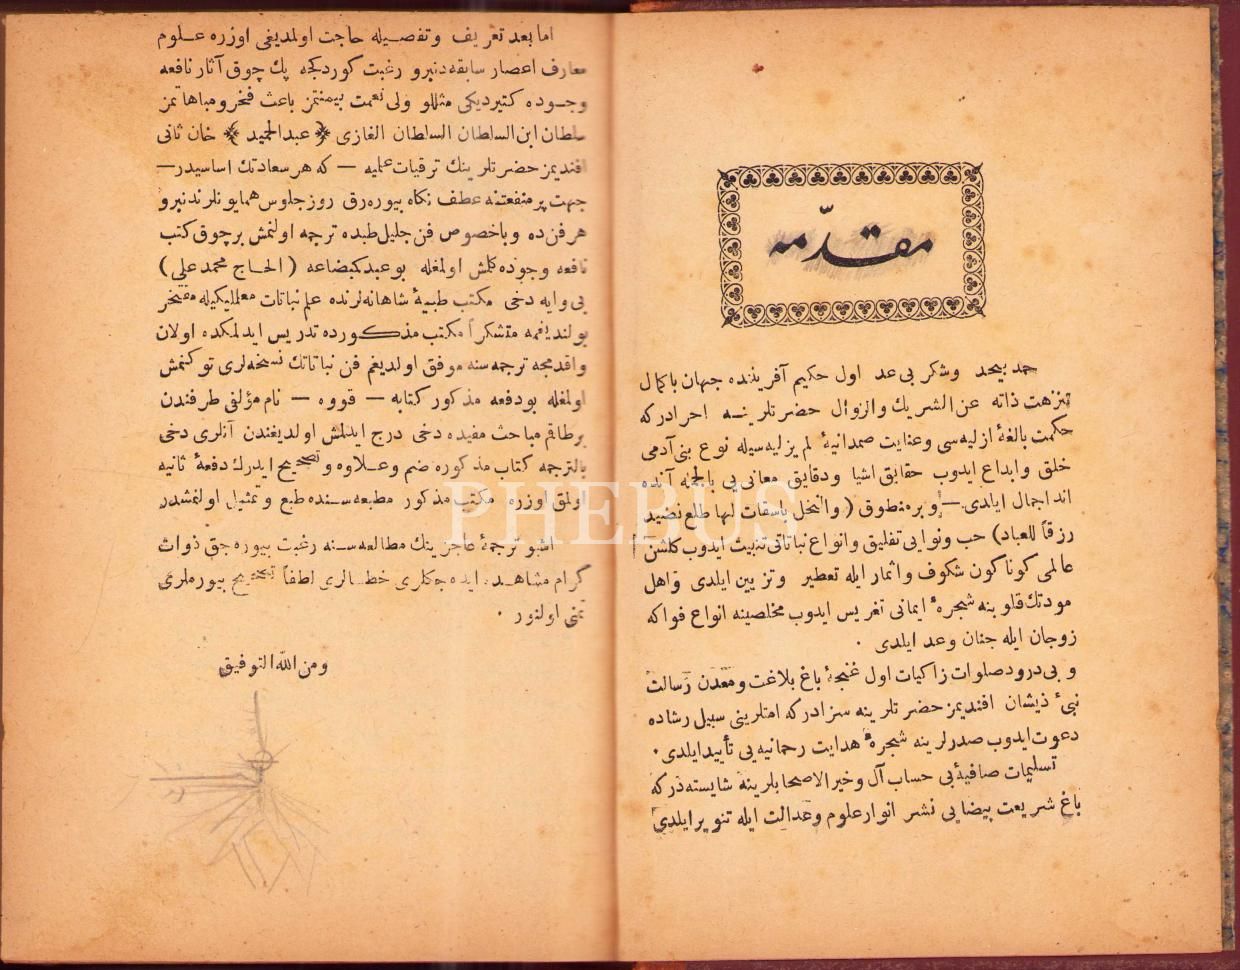 مقدّمه
حمد بیحد وشکر بی عد اول حکیم آفریننده جهان باکمال
تنزهت ذاته عن الشریك والزوال حضرتلرینه احرادرکه
حکمت بالغهٔ ازلیه سی وعنایت صمدانیهٔ لم یزلیه سیله نوع بنی آدمی
خلق وابداع ایدوب حقایق اشیا ودقایق معانی یی بالجمله آنده
اندا جمال ایلدی — وبرمنطوق (والنخل باسقات لها طلع نضید
رزقاً للعباد) حب ونوایی تفلیق وانواع نباتاتی تنبیت ایدوب کلشن
عالمی کوناکون شکوف واثمار ایله تعطیر وتزیین ایلدی واهل
مودتك قلوبنه شجرهٔ ایمانی تغریس ایدوب مخلصینه انواع فواکه
زوجان ایله جنان وعد ایلدی ·
و بی درود صلوات زاکیات اول غنجهٔ باغ بلاغت ومعدن رسالت
نبیٔ ذیشان افندیمز حضرتلرینه سزادرکه امتلرینی سبیل رشاده
دعوت ایدوب صدرلرینه شجرهٔ هدایت رحمانیه یی تأیید ایلدی ·
تسلیمات صافیهٔ بی حساب آل وخیر الاصحابلرینه شایسته درکه
باغ شریعت بیضایی نشر انوار علوم وعدالت ایله تنویر ایلدی
اما بعد تعریف وتفصیله حاجت اولمدیغی اوزره علوم
معارف اعصار سابقه دنبرو رغبت کوردکجه پك چوق آثار نافعه
وجوده کتیردیکی مثللو ولی نعمت بیمنتمز باعث فخر ومباهاتمز
سلطان ابن السلطان السلطان الغازی ﴿ عبد الحمید ﴾ خان ثانی
افندیمز حضرتلرینك ترقیات علمیه — که هر سعادتك اساسیدر —
جهت پر منفعتنه عطف نکاه بیوره رق روز جلوس همایونلرندنبرو
هر فن ده وباخصوص فن جلیل طبده ترجمه اولنمش برچوق کتب
نافعه وجوده کلمش اولمغله بوعبد کمبضاعه (الحاج محمد علی)
بی وایه دخی مکتب طبیهٔ شاهانه لرنده علم نباتات معلملیکیله مفتخر
بولندیغمه متشکراً مکتب مذکورده تدریس ایدلمکده اولان
واقدمجه ترجمه سنه موفق اولدیغم فن نباتاتك نسخه لری توکنمش
اولمغله بودفعه مذکور کتابه — قووه — نام مؤلفی طرفندن
برطاقم مباحث مفیده دخی درج ایدلمش اولدیغندن آنلری دخی
بالترجمه کتاب مذکوره ضم وعلاوه وتصحیح ایدرك دفعهٔ ثانیه
اولمق اوزره مکتب مذکور مطبعه سنده طبع وتمثیل اولنمشدر
اشبو ترجمهٔ عاجزینك مطالعه سنه رغبت بیوره جق ذوات
کرام مشاهده ایده جکلری خطالری لطفاً تصحیح بیورملری
تمنی اولنور ·
ومن الله التوفیق
PHEBUS